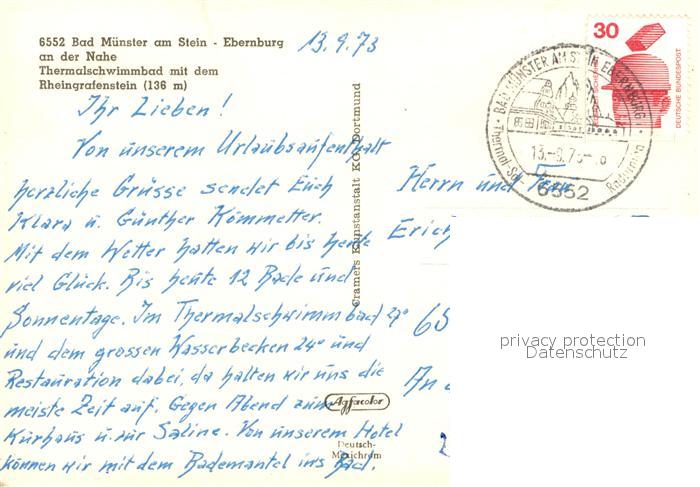 6552 Bad Münster am Stein - Ebernburg
an der Nahe
Thermalschwimmbad mit dem
Rheingrafenstein (136 m)
13.9.73
Ihr Lieben!
Von unserem Urlaubsaufenthalt
herzliche Grüsse sendet Euch
Klara u. Günther Kömmetter.
Mit dem Wetter hatten wir bis heute
viel Glück. Bis heute 12 Bade und
Sonnentage. Im Thermalschwimmbad 27°
und dem grossen Wasserbecken 24° und
Restauration dabei, da halten wir uns die
meiste Zeit auf. Gegen Abend zum
Kurhaus u. zur Saline. Von unserem Hotel
können wir mit dem Bademantel ins Bad.
Cramers Kunstanstalt KG, Dortmund
Agfacolor
Deutsch-
Mexichrom
30
DEUTSCHE BUNDESPOST
BAD MÜNSTER AM STEIN EBERNBURG
6552
Herrn und Frau
Erich
65
An
privacy protection
Datenschutz